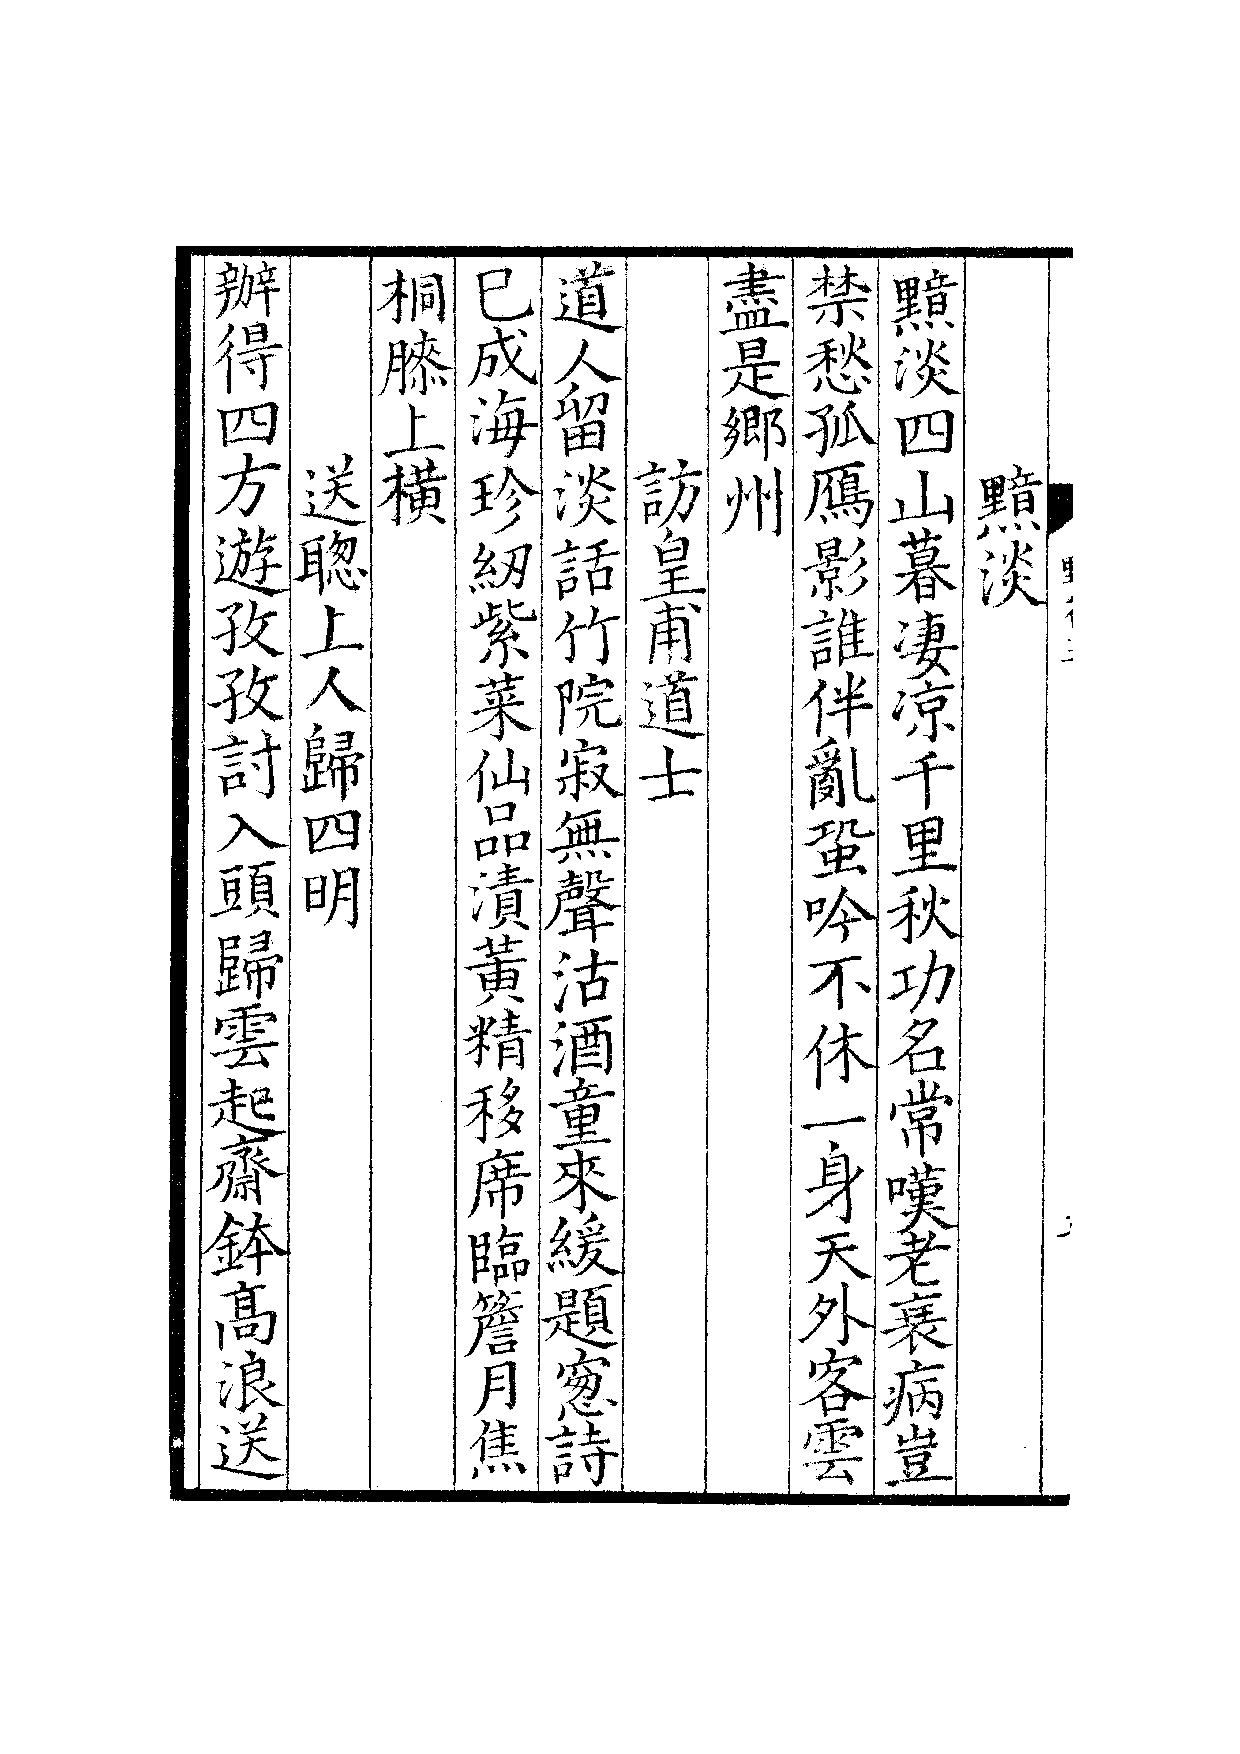 黯淡
黯淡四山暮淒凉千里秋功名常嘆老衰病豈
禁愁孤鴈影誰伴亂蛩吟不休一身天外客雲
盡是鄉州
訪皇甫道士
道人留淡話竹院寂無聲沽酒童來緩題窓詩
已成海珍紉紫菜仙品漬黃精移席臨簷月焦
桐膝上橫
送聰上人歸四明
辦得四方遊孜孜討入頭歸雲起齋鉢髙浪送